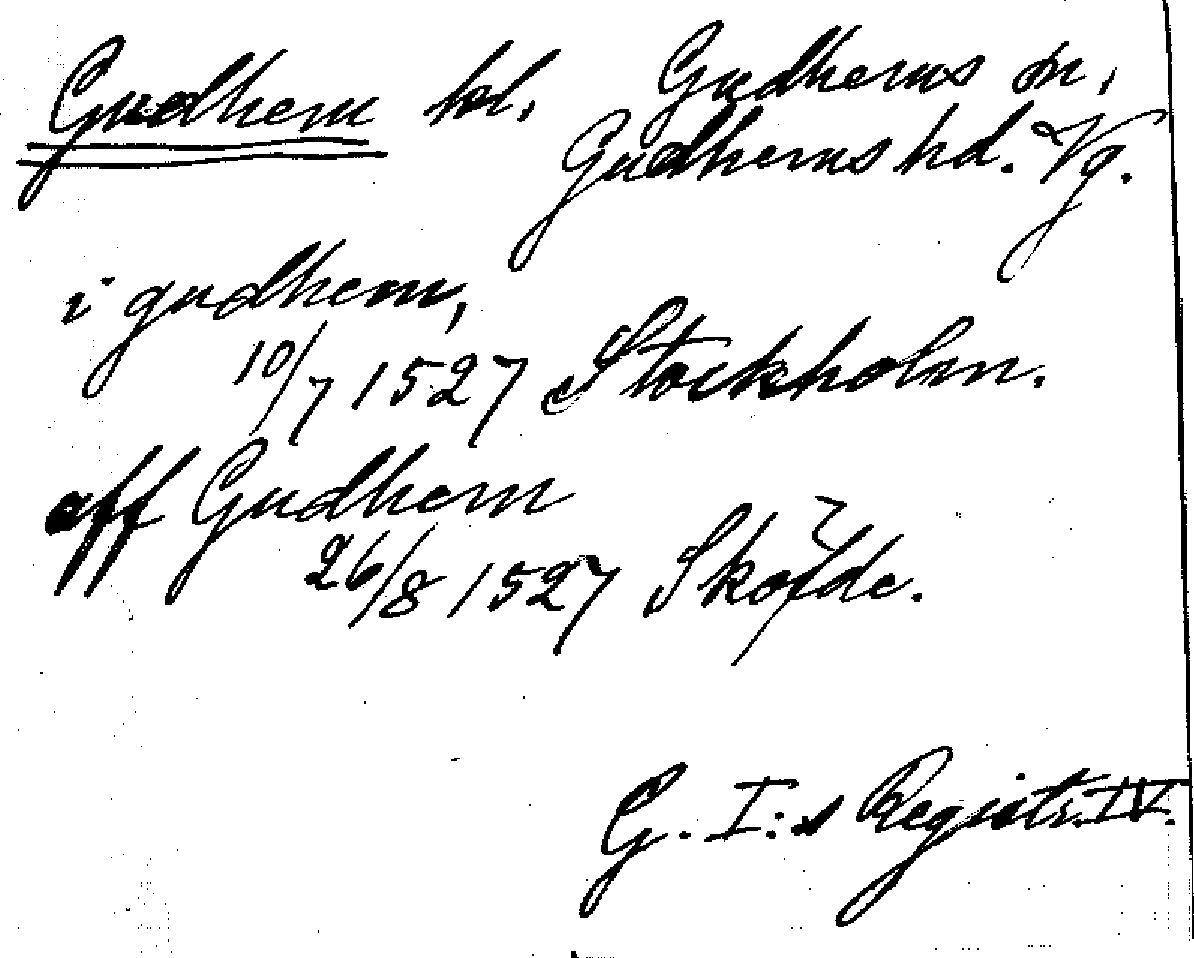 Gudhem kl. Gudhems sn,
Gudhems hd. Vg.
i gudhem,
10/7 1527 Stockholm.
aff Gudhem
26/8 1527 Skøfde.
G. I:s Registr. IV.